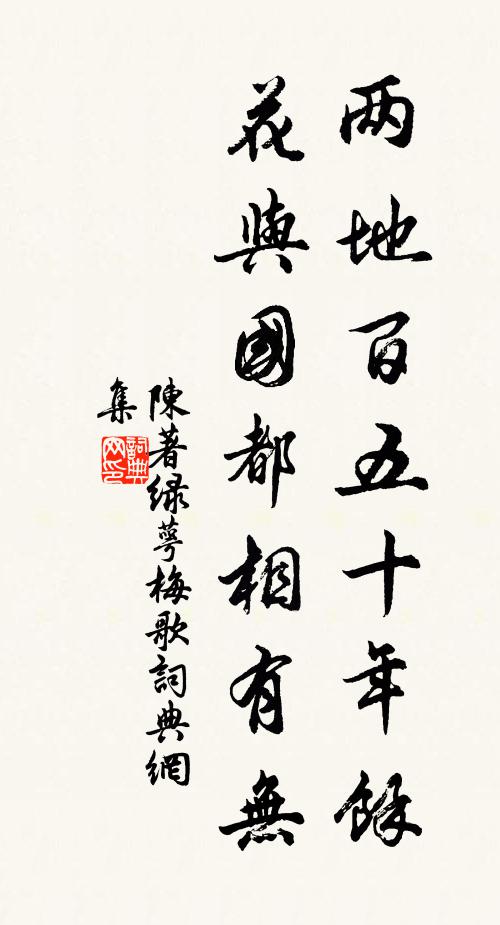 两地百五十年餘
花與國都相有無
陳著绿萼梅歌詞典網
集
詞典网印